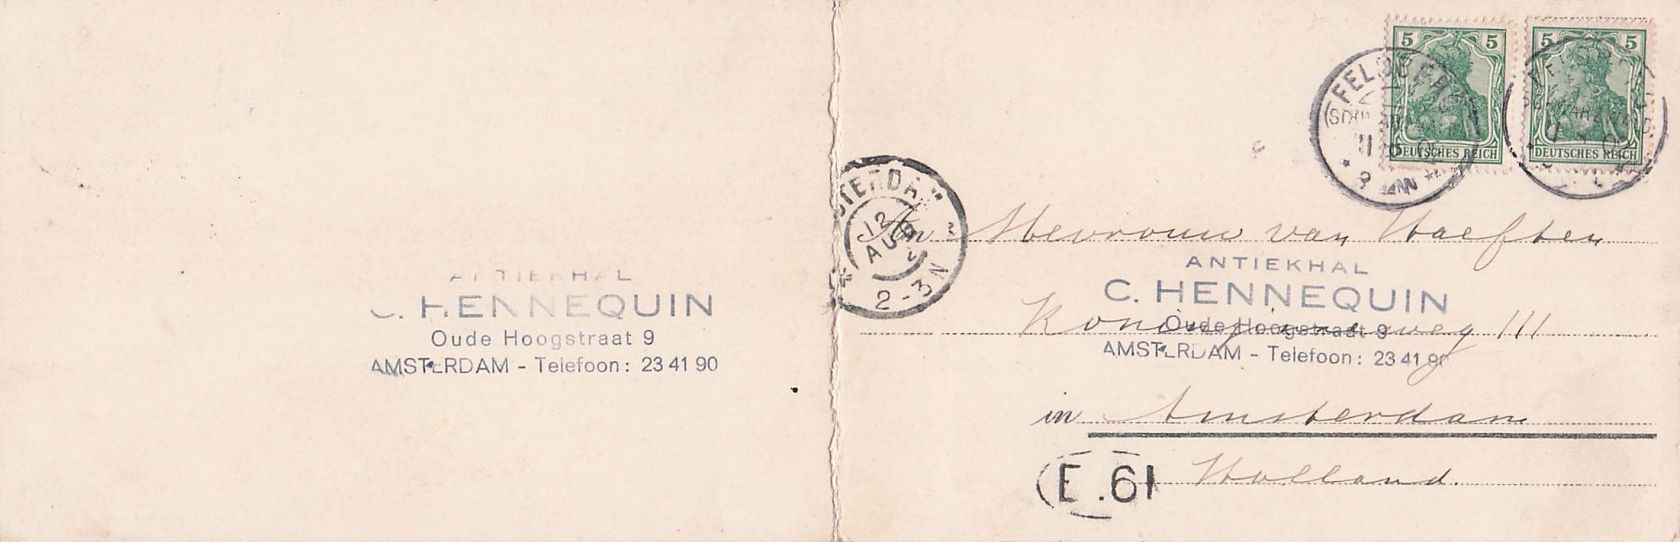 ANTIEKHAL
C. HENNEQUIN
Oude Hoogstraat 9
AMSTERDAM - Telefoon: 23 41 90
5 5
DEUTSCHES REICH
5 5
DEUTSCHES REICH
FELDBERG
11
AMSTERDAM
12
AUG
2-3N
An Mevrouw van Haeften
ANTIEKHAL
C. HENNEQUIN
Oude Hoogstraat 9
Koninginneweg 111
AMSTERDAM - Telefoon: 23 41 90
in Amsterdam
E.61
Holland.